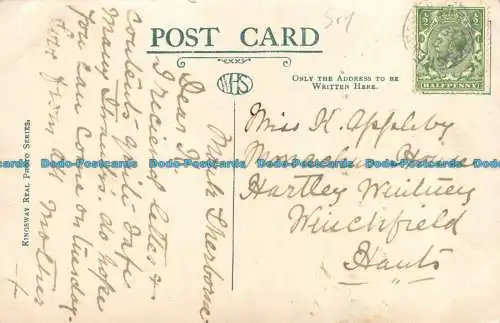 POST CARD
WHS
ONLY THE ADDRESS TO BE
WRITTEN HERE.
HALFPENNY
KINGSWAY REAL PHOTO SERIES.
Much Sherborne
Dear K.
I received letter &
Contents quite safe
Many thanks. do hope
you can come on Tuesday
Love from all
Mother
Miss K. Appleby
House
Hartley Wintney
Winchfield
Hants
Dodo-Postcards.com Dodo-Postcards.com Dodo-Postcards.com Dodo-Postcards.com Dodo-Postcards.com